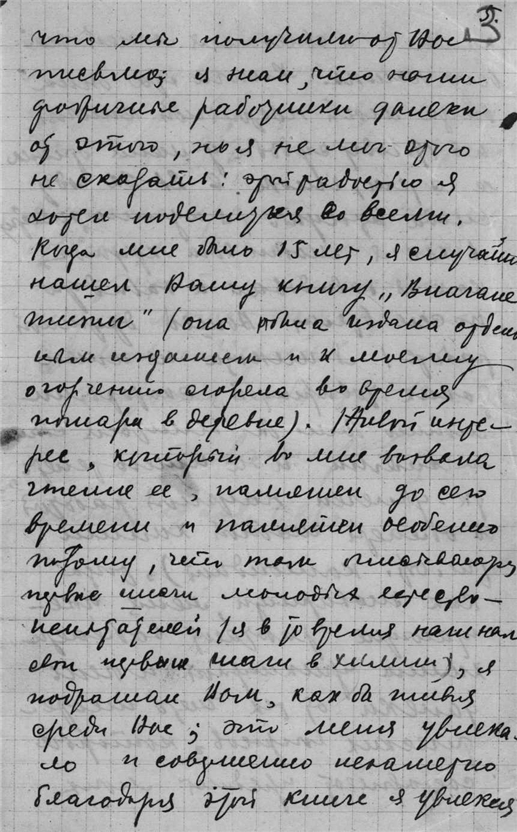 5.
что мы получили от Вас
письмо; я знаю, что наши
фабричные работники далеки
от этого, но я не мог этого
не сказать: этой радостью я
хотел поделиться со всеми.
Когда мне было 15 лет, я случайно
нашел Вашу книгу „В начале
жизни" (она была издана отдель
ным изданием и к моему
огорчению сгорела во время
пожара в деревне). Живой инте-
рес, который во мне вызвала
чтение ее, памятен до сего
времени и памятен особенно
потому, что там описываются
первые шаги молодых естество-
испытателей (я в то время начинал
свои первые шаги в химии), я
подражал Вам, как бы живя
среди Вас; это меня увлека-
ло и совершенно незаметно
благодаря этой книге я увлекся